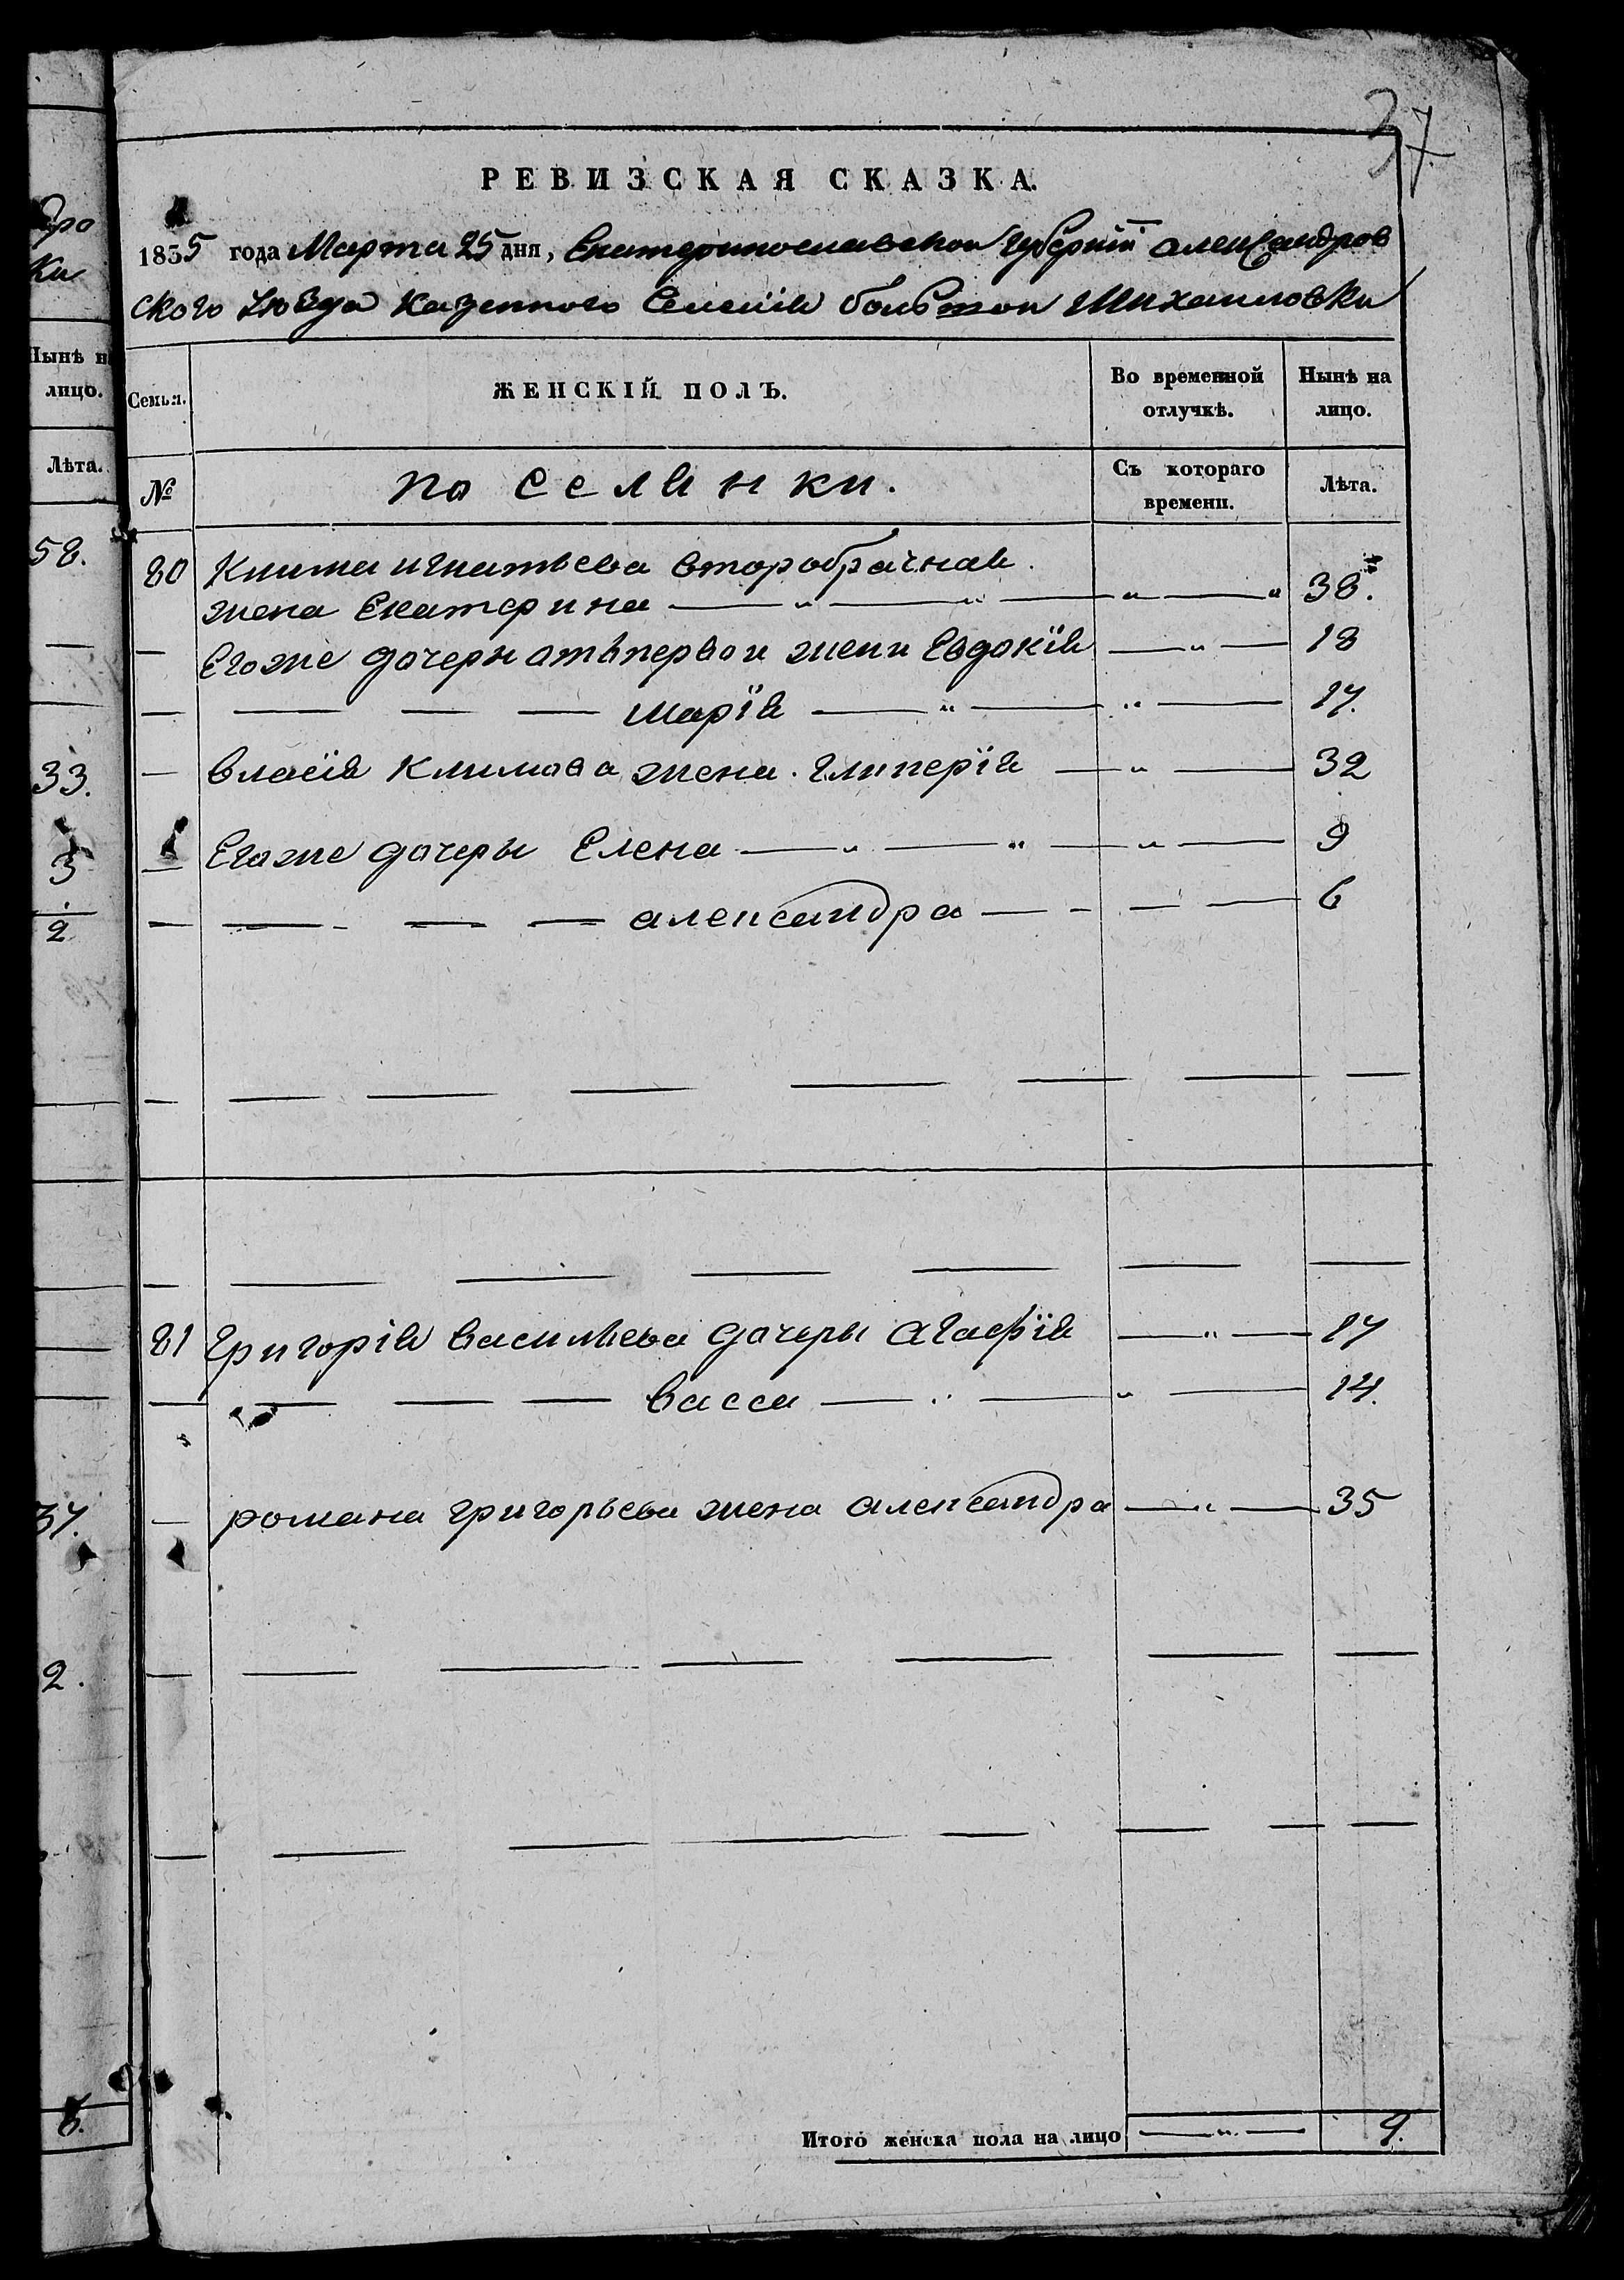 37.
РЕВИЗСКАЯ СКАЗКА.
1835 года Марта 25 дня, Екатеринославской Губерніи александров
ского уѣзда казенного Селенія большои Михаиловки
Семья. ЖЕНСКІЙ ПОЛЪ. Во временной отлучкѣ. Нынѣ на лицо.
№ поселянки. Съ котораго времени. Лѣта.
80 Клима игнатьева второбрачная
жена Екатерина — „ — „ — „ — „ 38.
— Егоже дочери отъ первои жени Евдокія — „ — 18
— — — — марія — „ — „ — 17.
— власія климова жена глікерія — „ — 32
— Егоже дочеры Елена — „ — „ — „ — 9
— — — — александра — - — — 6
81 Григорія васильева дочеры агафія — „ — 17
— — — — васса — „ — „ — 14.
— романа григорьева жена александра — „ — 35
Итого женска пола на лицо — „ — 9.
дро
ки
Нынѣ н
лицо.
Лѣта.
58.
33.
3
2
37.
2.